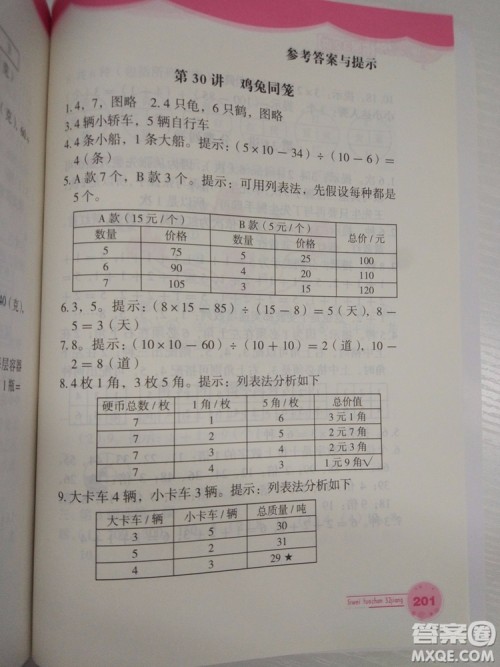 参考答案与提示
第 30 讲 鸡兔同笼
1. 4，7，图略 2. 4 只龟，6 只鹤，图略
3. 4 辆小轿车，5 辆自行车
4. 4 条小船，1 条大船。提示：（5×10－34）÷（10－6）＝
4（条）
5. A 款 7 个，B 款 3 个。提示：可用列表法，先假设每种都是
5 个。
A 款（15 元 / 个） B 款（5 元 / 个） 总价 / 元
数量 价格 数量 价格
5 75 5 25 100
6 90 4 20 110
7 105 3 15 120
6. 3，5。提示：（8×15－85）÷（15－8）＝5（天），8－
5＝3（天）
7. 8。提示：（10×10－60）÷（10＋10）＝2（道），10－
2＝8（道）
8. 4 枚 1 角，3 枚 5 角。提示：列表法分析如下
硬币总数 / 枚 1 角 / 枚 5 角 / 枚 总价值
7 1 6 3 元 1 角
7 2 5 2 元 7 角
7 3 4 2 元 3 角
7 4 3 1 元 9 角√
9. 大卡车 4 辆，小卡车 3 辆。提示：列表法分析如下
大卡车 / 辆 小卡车 / 辆 总质量 / 吨
3 5 30
5 2 31
4 3 29★
201
答案圈
MXQE.COM